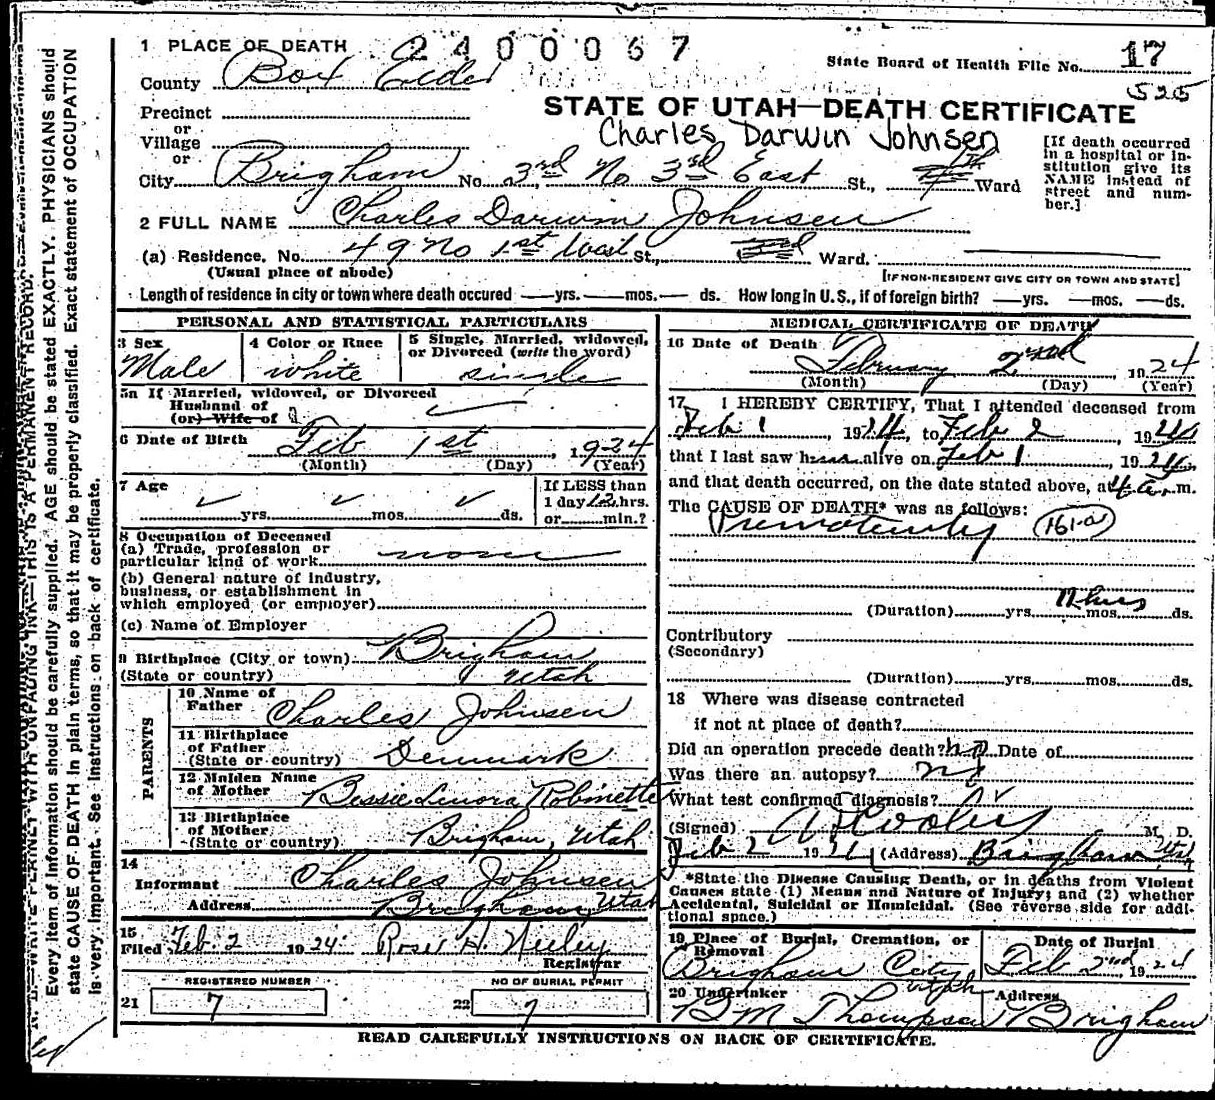 1 PLACE OF DEATH 2400067
State Board of Health File No. 17
County Box Elder
525
STATE OF UTAH—DEATH CERTIFICATE
Precinct
or
Village
or
Charles Darwin Johnsen
City Brigham No. 3rd No 3rd East St., 4th Ward
[If death occurred in a hospital or institution give its NAME instead of street and number.]
2 FULL NAME Charles Darwin Johnsen
(a) Residence. No. 49 no 1st West St., 3rd Ward.
(Usual place of abode)
[IF NON-RESIDENT GIVE CITY OR TOWN AND STATE]
Length of residence in city or town where death occured —yrs. —mos.— ds. How long in U. S., if of foreign birth? —yrs. —mos. —ds.
PERSONAL AND STATISTICAL PARTICULARS
3 Sex 4 Color or Race 5 Single, Married, widowed, or Divorced (write the word)
Male white single
5a If Married, widowed, or Divorced
Husband of
(or) Wife of
6 Date of Birth Feb 1st, 1924
(Month) (Day) (Year)
7 Age If LESS than
1 day 12 hrs.
yrs. mos. ds. or min.?
8 Occupation of Deceased
(a) Trade, profession or
particular kind of work none
(b) General nature of industry,
business, or establishment in
which employed (or employer)
(c) Name of Employer
9 Birthplace (City or town) Brigham
(State or country) Utah
PARENTS
10 Name of
Father Charles Johnsen
11 Birthplace
of Father
(State or country) Denmark
12 Maiden Name
of Mother Bessie Lenora Robinette
13 Birthplace
of Mother
(State or country) Brigham, Utah
14
Informant Charles Johnsen
Address Brigham Utah
15
Filed Feb. 2 1924 Rose H. Neeley
Registrar
REGISTERED NUMBER NO OF BURIAL PERMIT
21 7 22 7
MEDICAL CERTIFICATE OF DEATH
16 Date of Death
February 2nd 1924
(Month) (Day) (Year)
17 I HEREBY CERTIFY, That I attended deceased from
Feb 1, 1924, to Feb 2, 1924
that I last saw him alive on Feb 1, 1924,
and that death occurred, on the date stated above, at 4 a. m.
The CAUSE OF DEATH* was as follows:
Prematurity 161-a
(Duration) yrs. 12 hrs mos. ds.
Contributory
(Secondary)
(Duration) yrs. mos. ds.
18 Where was disease contracted
if not at place of death?
Did an operation precede death? no Date of
Was there an autopsy? no
What test confirmed diagnosis?
(Signed) M. D.
Feb 2 1924 (Address) Brigham Utah
*State the Disease Causing Death, or in deaths from Violent
Causes state (1) Means and Nature of Injury; and (2) whether
Accidental, Suicidal or Homicidal. (See reverse side for addi-
tional space.)
19 Place of Burial, Cremation, or Removal Date of Burial
Brigham City Utah Feb 2nd 1924
20 Undertaker Address
B M Thompson Brigham
READ CAREFULLY INSTRUCTIONS ON BACK OF CERTIFICATE.
N. B.—WRITE PLAINLY WITH UNFADING INK—THIS IS A PERMANENT RECORD.
Every item of information should be carefully supplied. AGE should be stated EXACTLY. PHYSICIANS should
state CAUSE OF DEATH in plain terms, so that it may be properly classified. Exact statement of OCCUPATION
is very important. See instructions on back of certificate.